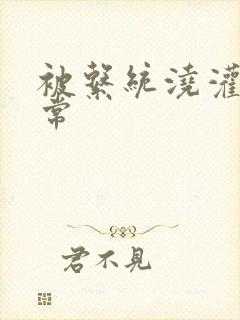 被繫統澆灌
常
君不見